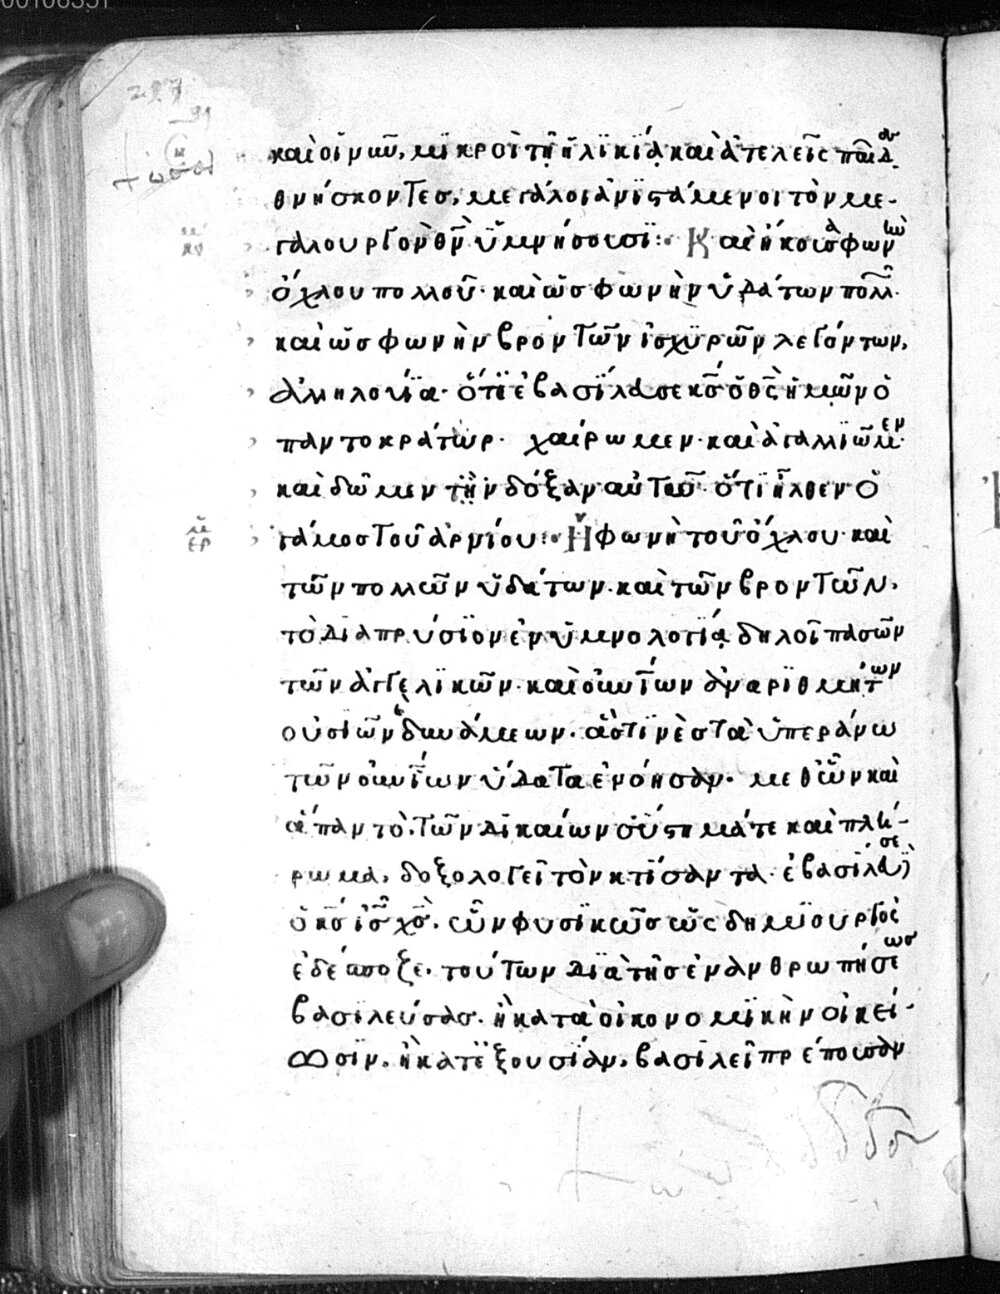 καὶ οἱ νῦν, μικροὶ τῇ ἡλικίᾳ καὶ ἀτελεῖς παῖδ
θνήσκοντες, μεγάλοι ἀνιστάμενοι τὸν με-
γαλουργὸν θν ὑμνήσουσι: Καὶ ἤκουσα φωνὼ
ὄχλου πολλοῦ· καὶ ὡς φωνὴν ὑδάτων πολλ
καὶ ὡς φωνὴν βροντῶν ἰσχυρῶν λεγόντων,
ἀλληλούϊα· ὅτι ἐβασίλευσε κς ὁ θς ἡμῶν ὁ
παντοκράτωρ· χαίρωμεν· καὶ ἀγαλλιῶμεν·
καὶ δῶμεν τὴν δόξαν αὐτοῦ· ὅτι ἦλθεν ὁ
γάμος τοῦ ἀρνίου: Ἡ φωνὴ τοῦ ὄχλου καὶ
τῶν πολλῶν ὑδάτων· καὶ τῶν βροντῶν,
τὸ διαπρύσιον ἐν ὑμνολογίᾳ δηλοῖ πασῶν
τῶν ἀγγελικῶν· καὶ οὐνίων ἀναριθμήτων
οὐσιῶν δυνάμεων· ἅστινὲς τὰ ὑπεράνω
τῶν οὐνίων ὕδατα ἐνόησαν· μεθ ὧν καὶ
ἅπαν τὸ, τῶν δικαίων σύστημάτε καὶ πλή-
ρωμα, δοξολογεῖ τὸν κτίσαντα· ἐβασίλευσε
ὁ κς ις χς· ὧν φυσικῶς ὡς δημιουργὸς
ἐδέσποζε, τούτων διὰ τῆς ἐνανθρωπήσεως
βασιλεύσας· ἢ κατὰ οἰκονομικὴν οἰκεί-
ωσιν, ἢ κατ ἐξουσίαν, βασιλεῖ πρέπουσαν